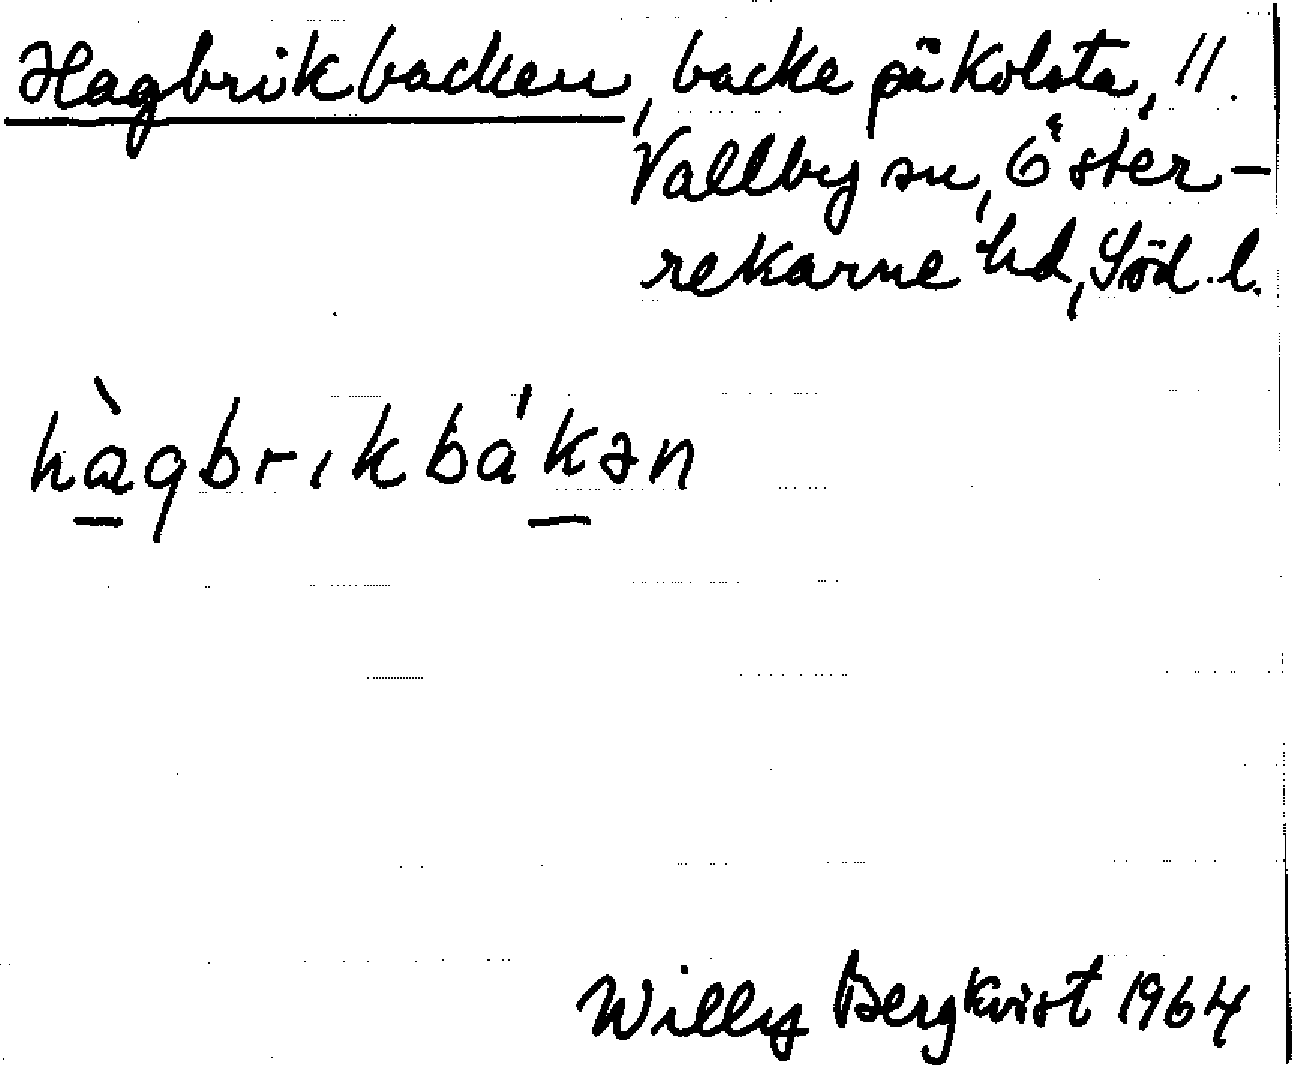 Hagbrikbacken, backe på Kolsta, 11.
Vallby sn, Öster-
rekarne hd, Söd. l.
hàgbrıkbá'kən
Willy Bergkvist 1964